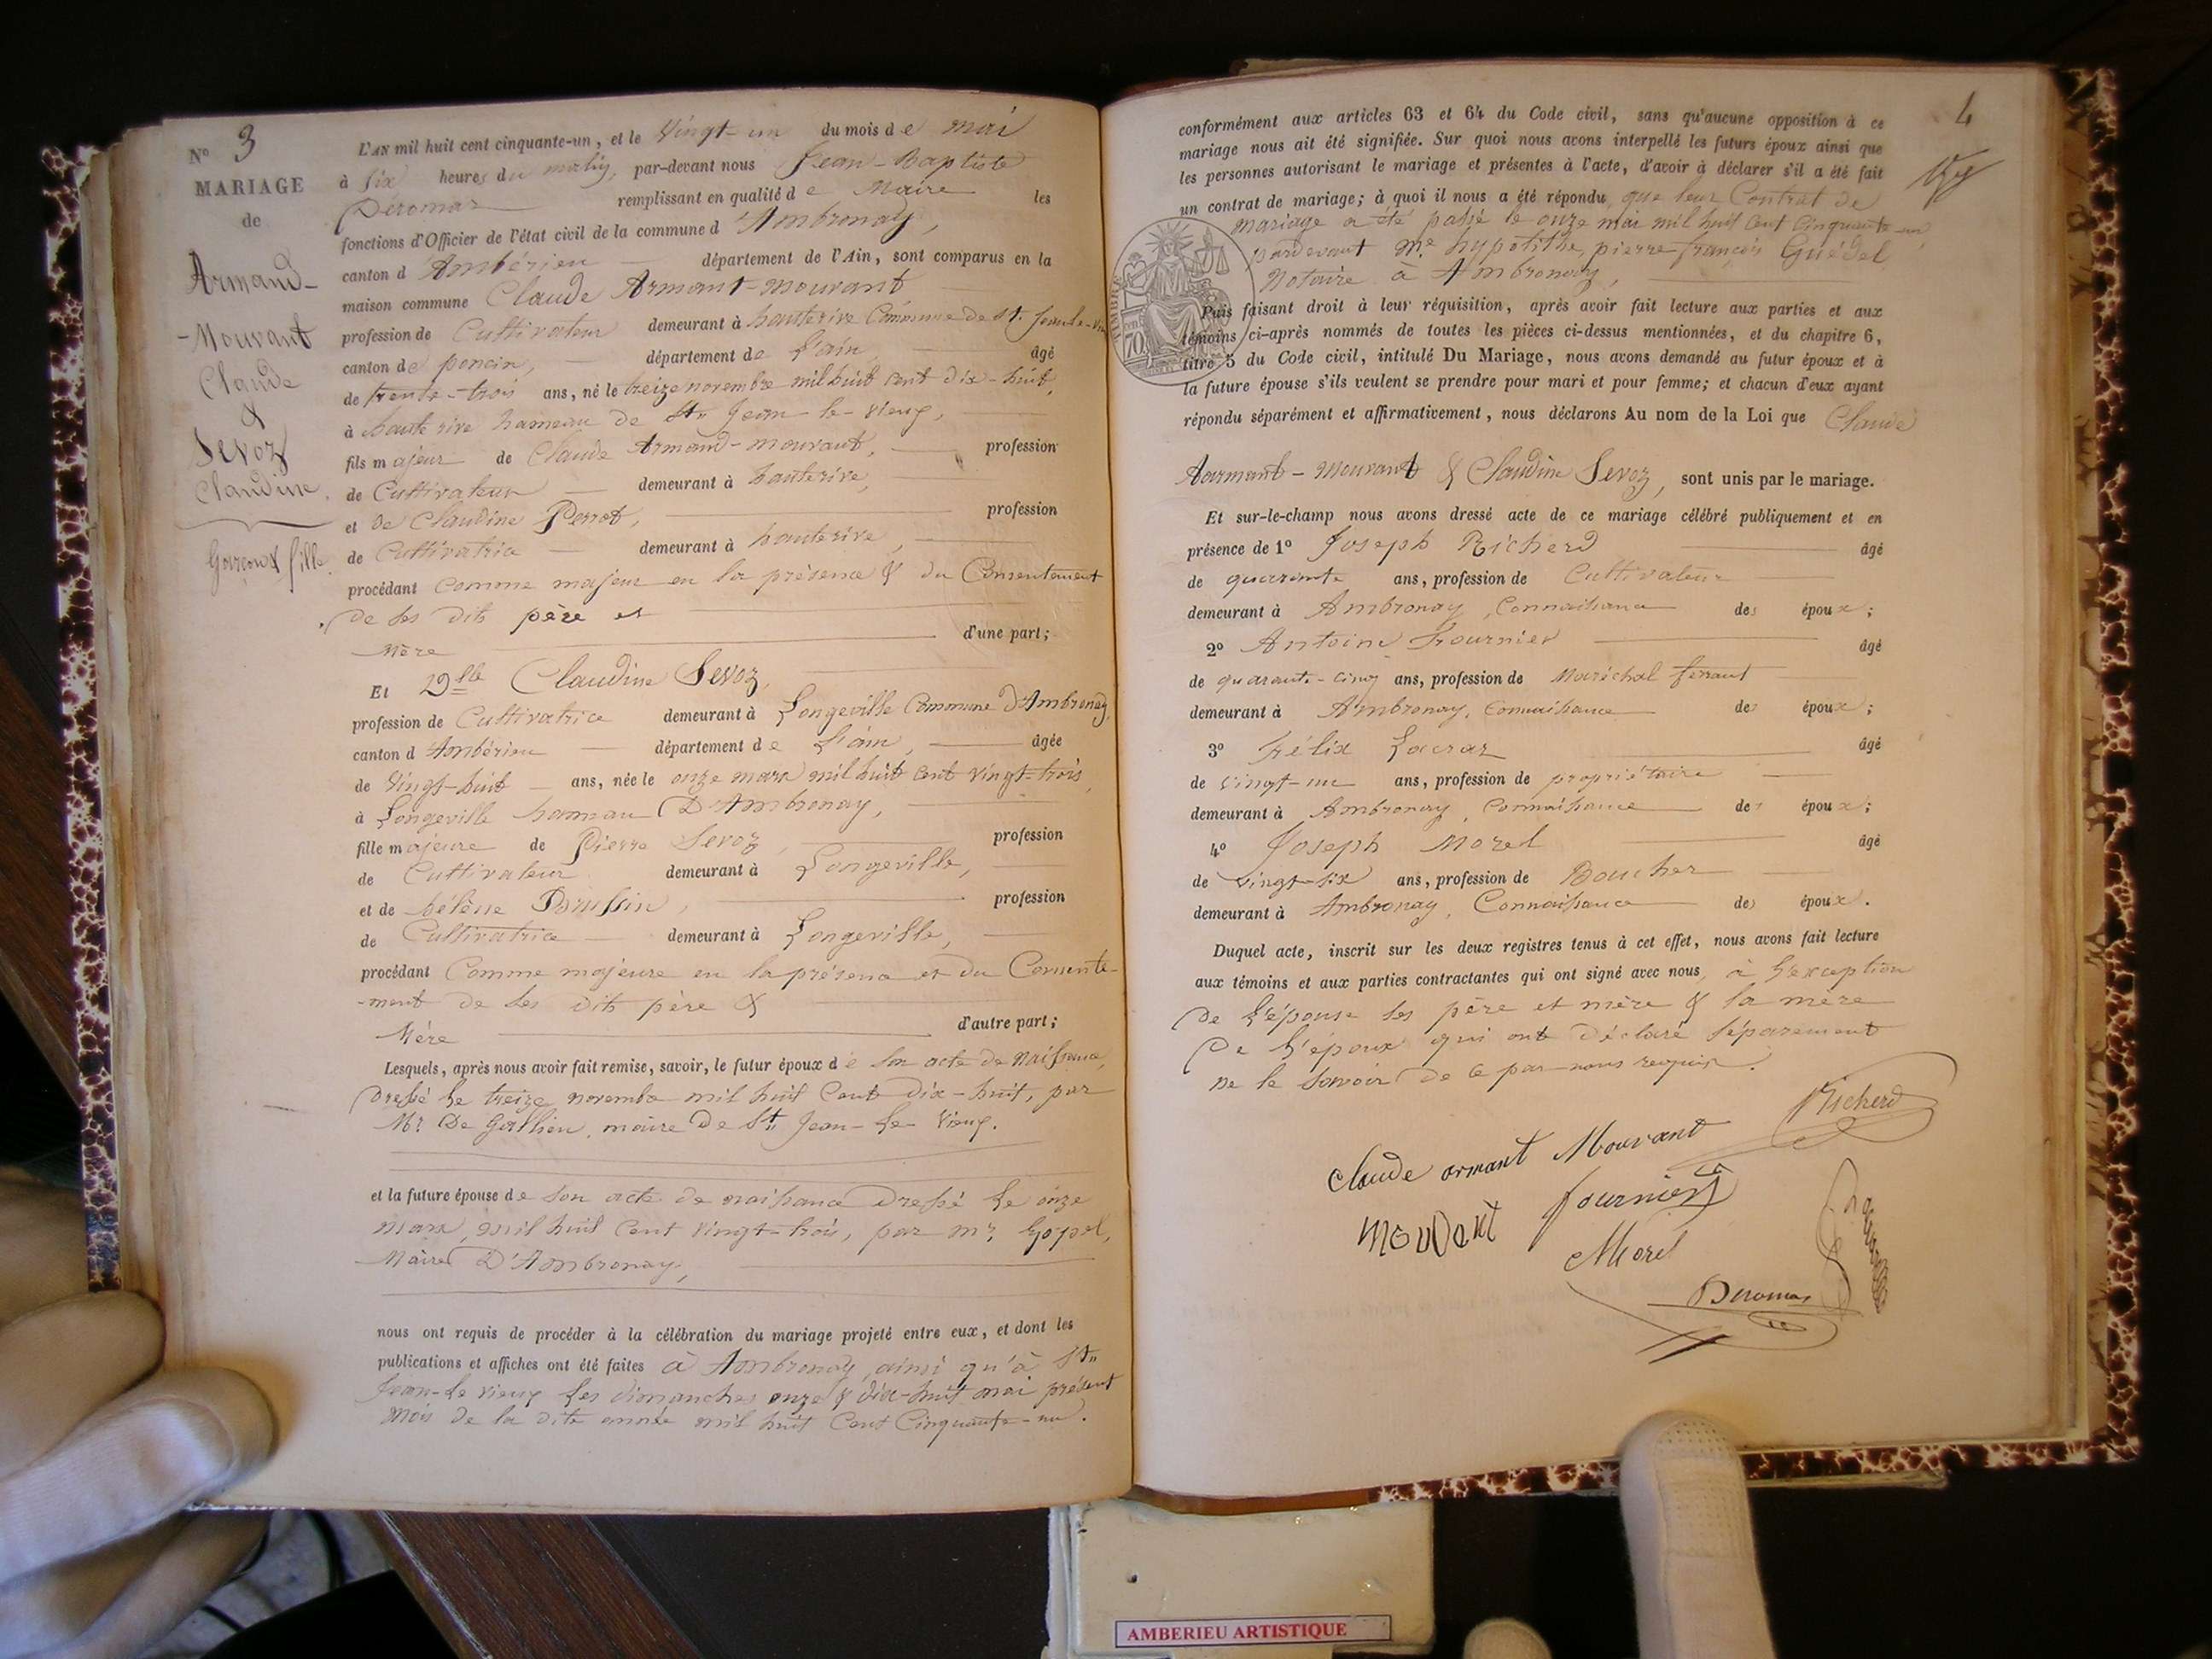 N° 3
MARIAGE
de
Armand-
-Mouvant
Claude
&
Sevoz
Claudine.
Garçon & fille.
L'AN mil huit cent cinquante-un, et le Vingt-un du mois de mai
à Six heures du matin, par-devant nous Jean-Baptiste
Déromas remplissant en qualité de Maire les
fonctions d'Officier de l'état civil de la commune d'Ambronay,
canton d'Ambérieu département de l'Ain, sont comparus en la
maison commune Claude Armant-mouvant
profession de Cultivateur demeurant à hauterive Commune de St. Jean-le-vieux
canton de poncin, département de L'ain, âgé
de trente-trois ans, né le treize novembre mil huit cent dix-huit,
à haute rive hameau de St Jean-le-Vieux,
fils majeur de Claude Armand-mouvant, profession
de Cultivateur demeurant à hauterive,
et de Claudine Perrot, profession
de Cultivatrice demeurant à hauterive,
procédant comme majeur en la présence & du Consentement
de ses dits père et
Mère d'une part;
Et Dlle Claudine Sevoz,
profession de Cultivatrice demeurant à Longeville Commune d'Ambronay,
canton d'Ambérieu département de L'ain, âgée
de Vingt-huit ans, née le onze mars mil huit cent vingt-trois,
à Longeville hameau D'Ambronay,
fille majeure de Pierre Sevoz, profession
de Cultivateur demeurant à Longeville,
et de hélène Brussin, profession
de Cultivatrice demeurant à Longeville,
procédant Comme majeure en la présence et du Consente-
-ment de ses dits père &
Mère d'autre part;
Lesquels, après nous avoir fait remise, savoir, le futur époux de son acte de naissance,
dressé le treize novembre mil huit Cent dix-huit, par
Mr. De Gallien, maire de St Jean-Le-Vieux.
et la future épouse de son acte de naissance dressé le onze
mars, mil huit Cent vingt-trois, par mr. Gopel,
Maire D'Ambronay,
nous ont requis de procéder à la célébration du mariage projeté entre eux, et dont les
publications et affiches ont été faites à Ambronay, ainsi qu'à St
Jean-Le vieux Les dimanches onze & dix-huit mai présent
mois de la dite année mil huit Cent Cinquante-un.
4
conformément aux articles 63 et 64 du Code civil, sans qu'aucune opposition à ce
mariage nous ait été signifiée. Sur quoi nous avons interpellé les futurs époux ainsi que
les personnes autorisant le mariage et présentes à l'acte, d'avoir à déclarer s'il a été fait
un contrat de mariage; à quoi il nous a été répondu que leur Contrat de
mariage a été passé le onze mai mil huit cent Cinquante-un,
pardevant Me. hypolithe, pierre-françois Guédel
Notaire à Ambronay,
TIMBRE
70
Puis faisant droit à leur réquisition, après avoir fait lecture aux parties et aux
témoins ci-après nommés de toutes les pièces ci-dessus mentionnées, et du chapitre 6,
titre 5 du Code civil, intitulé Du Mariage, nous avons demandé au futur époux et à
la future épouse s'ils veulent se prendre pour mari et pour femme; et chacun d'eux ayant
répondu séparément et affirmativement, nous déclarons Au nom de la Loi que Claude
Aarmant-Mouvant & Claudine Sevoz, sont unis par le mariage.
Et sur-le-champ nous avons dressé acte de ce mariage célébré publiquement et en
présence de 1° Joseph Richerd âgé
de quarante ans, profession de Cultivateur
demeurant à Ambronay, Connaissance des époux;
2° Antoine Fournier âgé
de quarante-cinq ans, profession de Maréchal ferrant
demeurant à Ambronay, Connaissance des époux;
3° Félix Lacraz âgé
de vingt-un ans, profession de propriétaire
demeurant à Ambronay, Connaissance des époux;
4° Joseph Morel âgé
de vingt-six ans, profession de Boucher
demeurant à Ambronay, Connaissance des époux.
Duquel acte, inscrit sur les deux registres tenus à cet effet, nous avons fait lecture
aux témoins et aux parties contractantes qui ont signé avec nous, à L'exception
De L'épouse ses père et mère & la mère
De L'époux qui ont déclaré séparement
ne le savoir de ce par nous requis.
Richerd
Claude armant Mouvant
fournier
MOUVANT
Morel
Déromas
AMBERIEU ARTISTIQUE